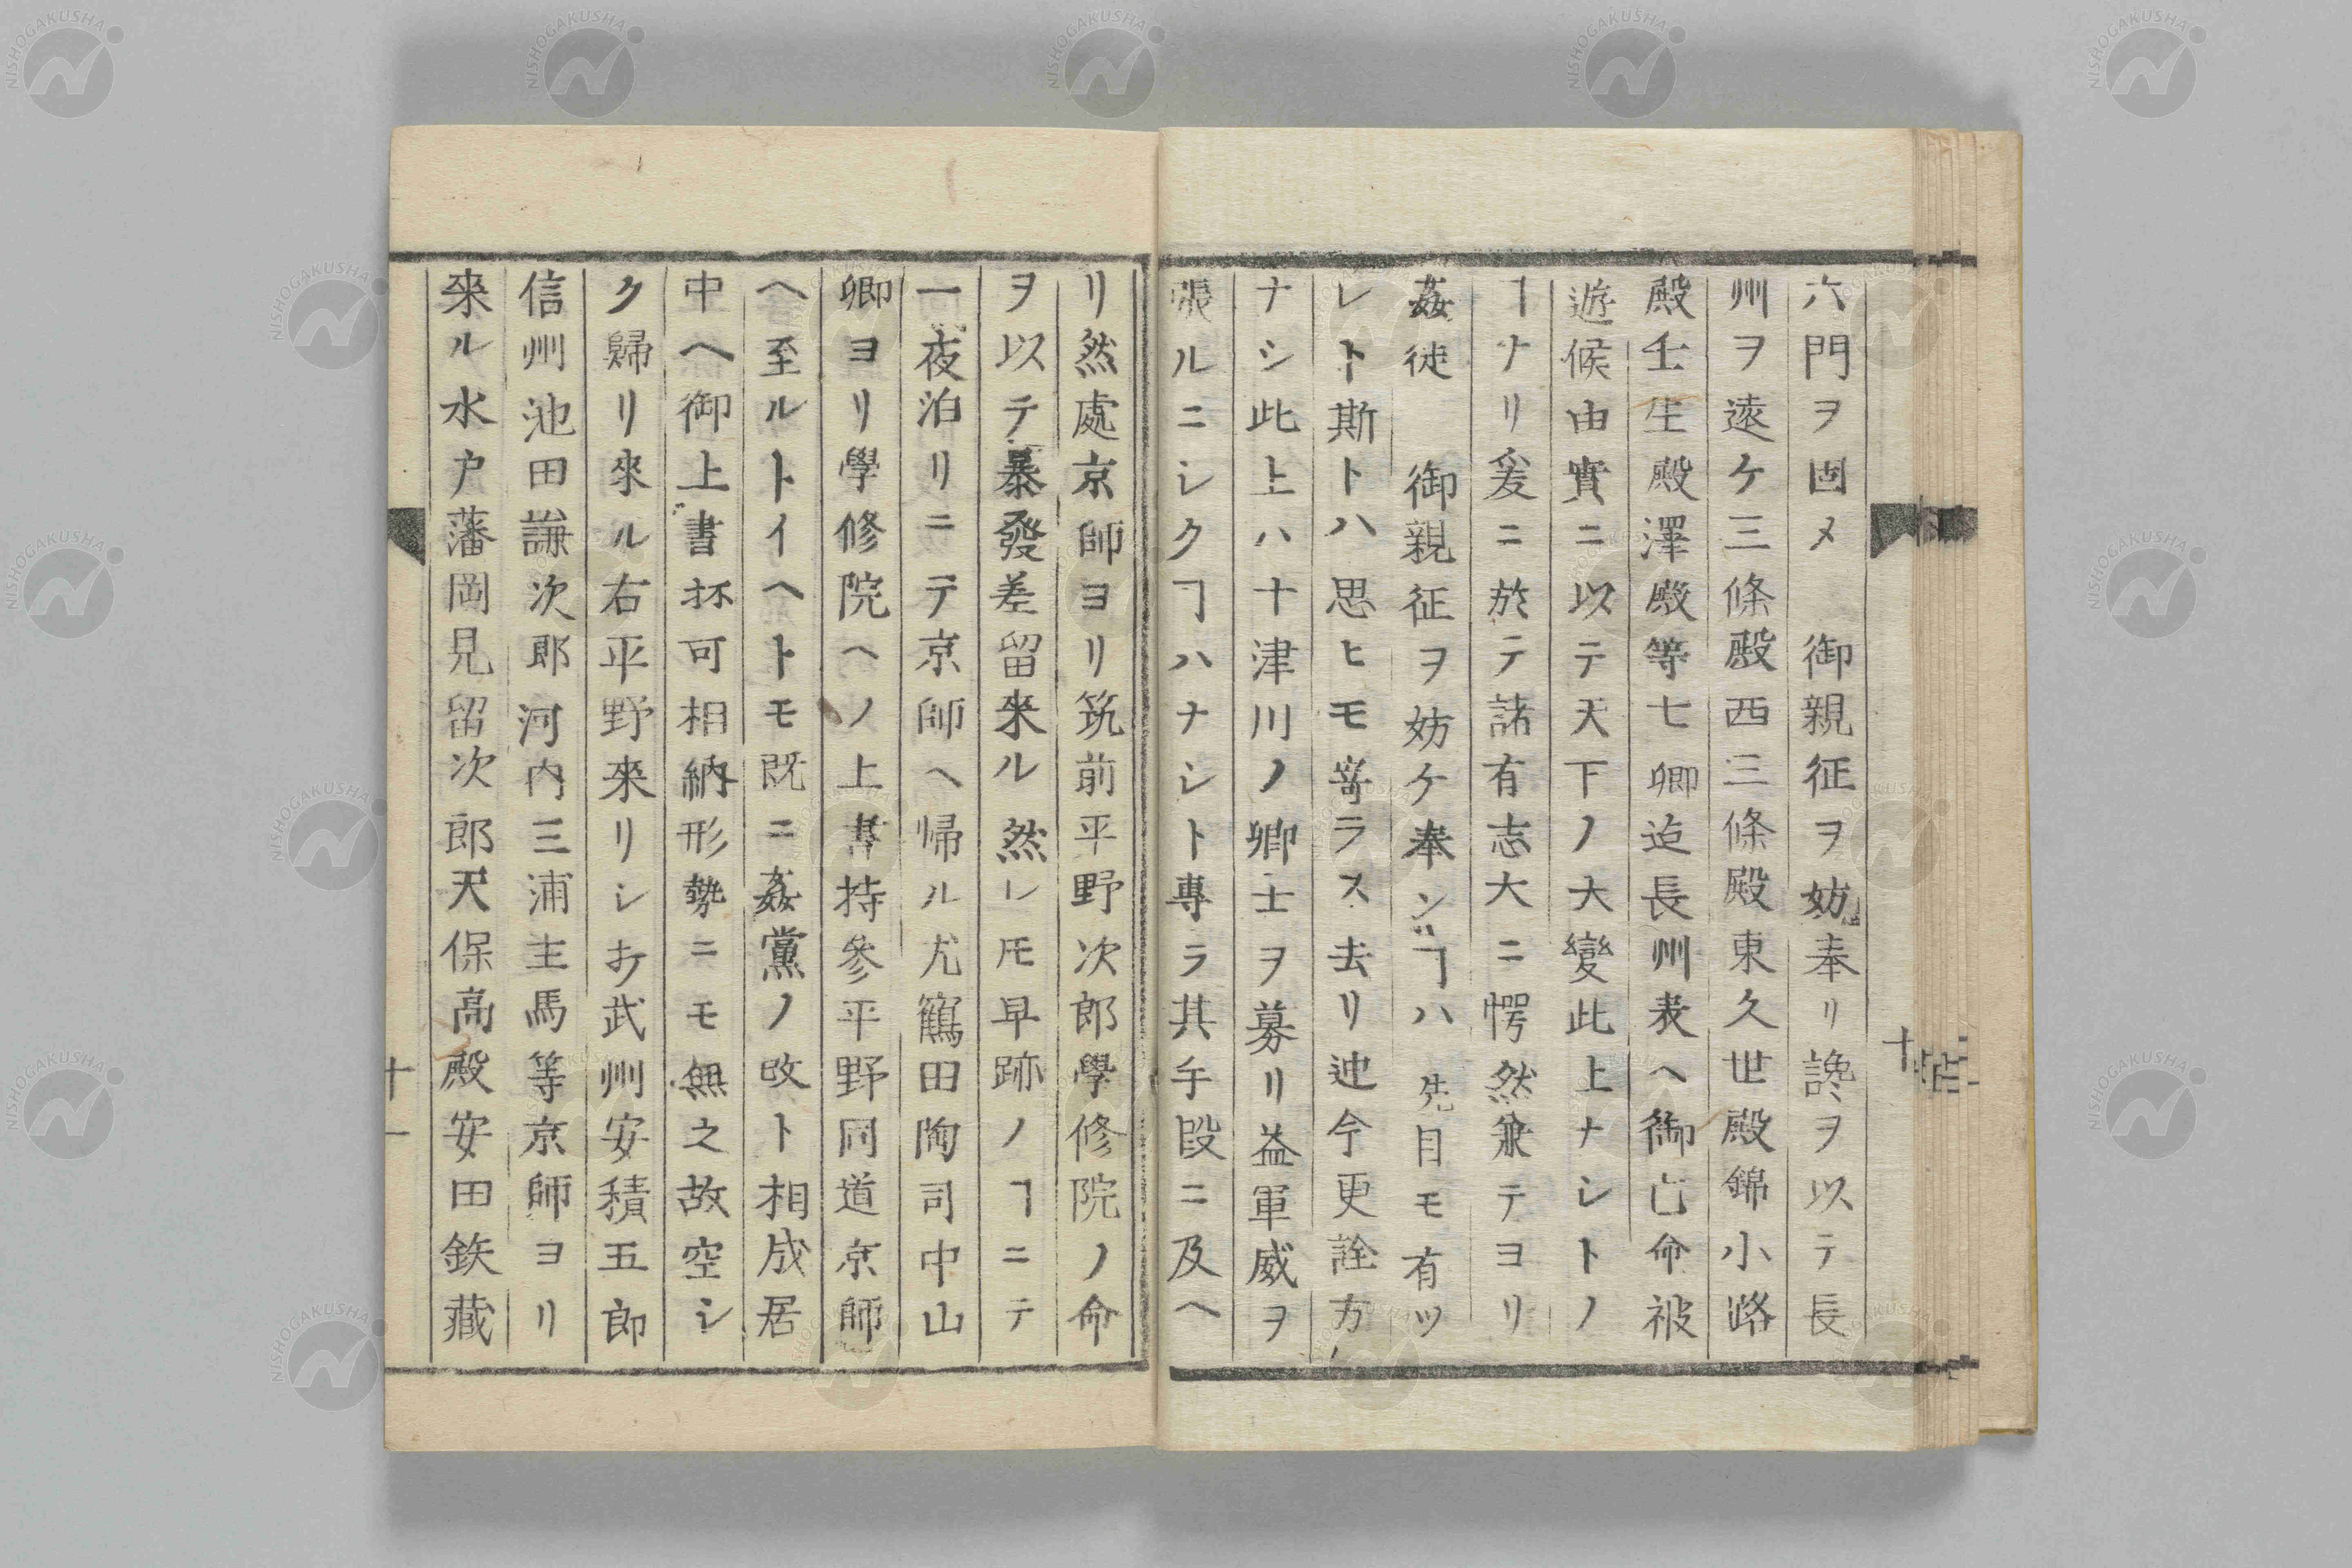 六門ヲ固メ　御親征ヲ妨奉リ讒ヲ以テ長
州ヲ遠ケ三條殿西三條殿東久世殿錦小路
殿壬生殿澤殿等七卿迠長州表ヘ御亡命被
遊候由實ニ以テ天下ノ大變此上ナシトノ
ヿナリ爰ニ於テ諸有志大ニ愕然兼テヨリ
姦徒　御親征ヲ妨ケ奉ンヿハ先目モ有ツ
レト斯トハ思ヒモ寄ラス去リ迚今更詮方
ナシ此上ハ十津川ノ郷士ヲ募リ益軍威ヲ
張ルニシクヿハナシト專ラ其手段ニ及ヘ
十
リ然處京師ヨリ筑前平野次郎學修院ノ命
ヲ以テ暴發差留來ル然レ𪜈早跡ノヿニテ
一夜泊リニテ京師ヘ帰ル尤鶴田陶司中山
卿ヨリ學修院ヘノ上書持參平野同道京師
ヘ至ルトイヘトモ既ニ姦黨ノ政ト相成居
中ヘ御上書抔可相納形勢ニモ無之故空シ
ク歸リ來ル右平野來リシ于武州安積五郎
信州池田謙次郎河内三浦主馬等京師ヨリ
來ル水戸藩岡見留次郎天保高殿安田鉄藏
十一
NISHOGAKUSHA